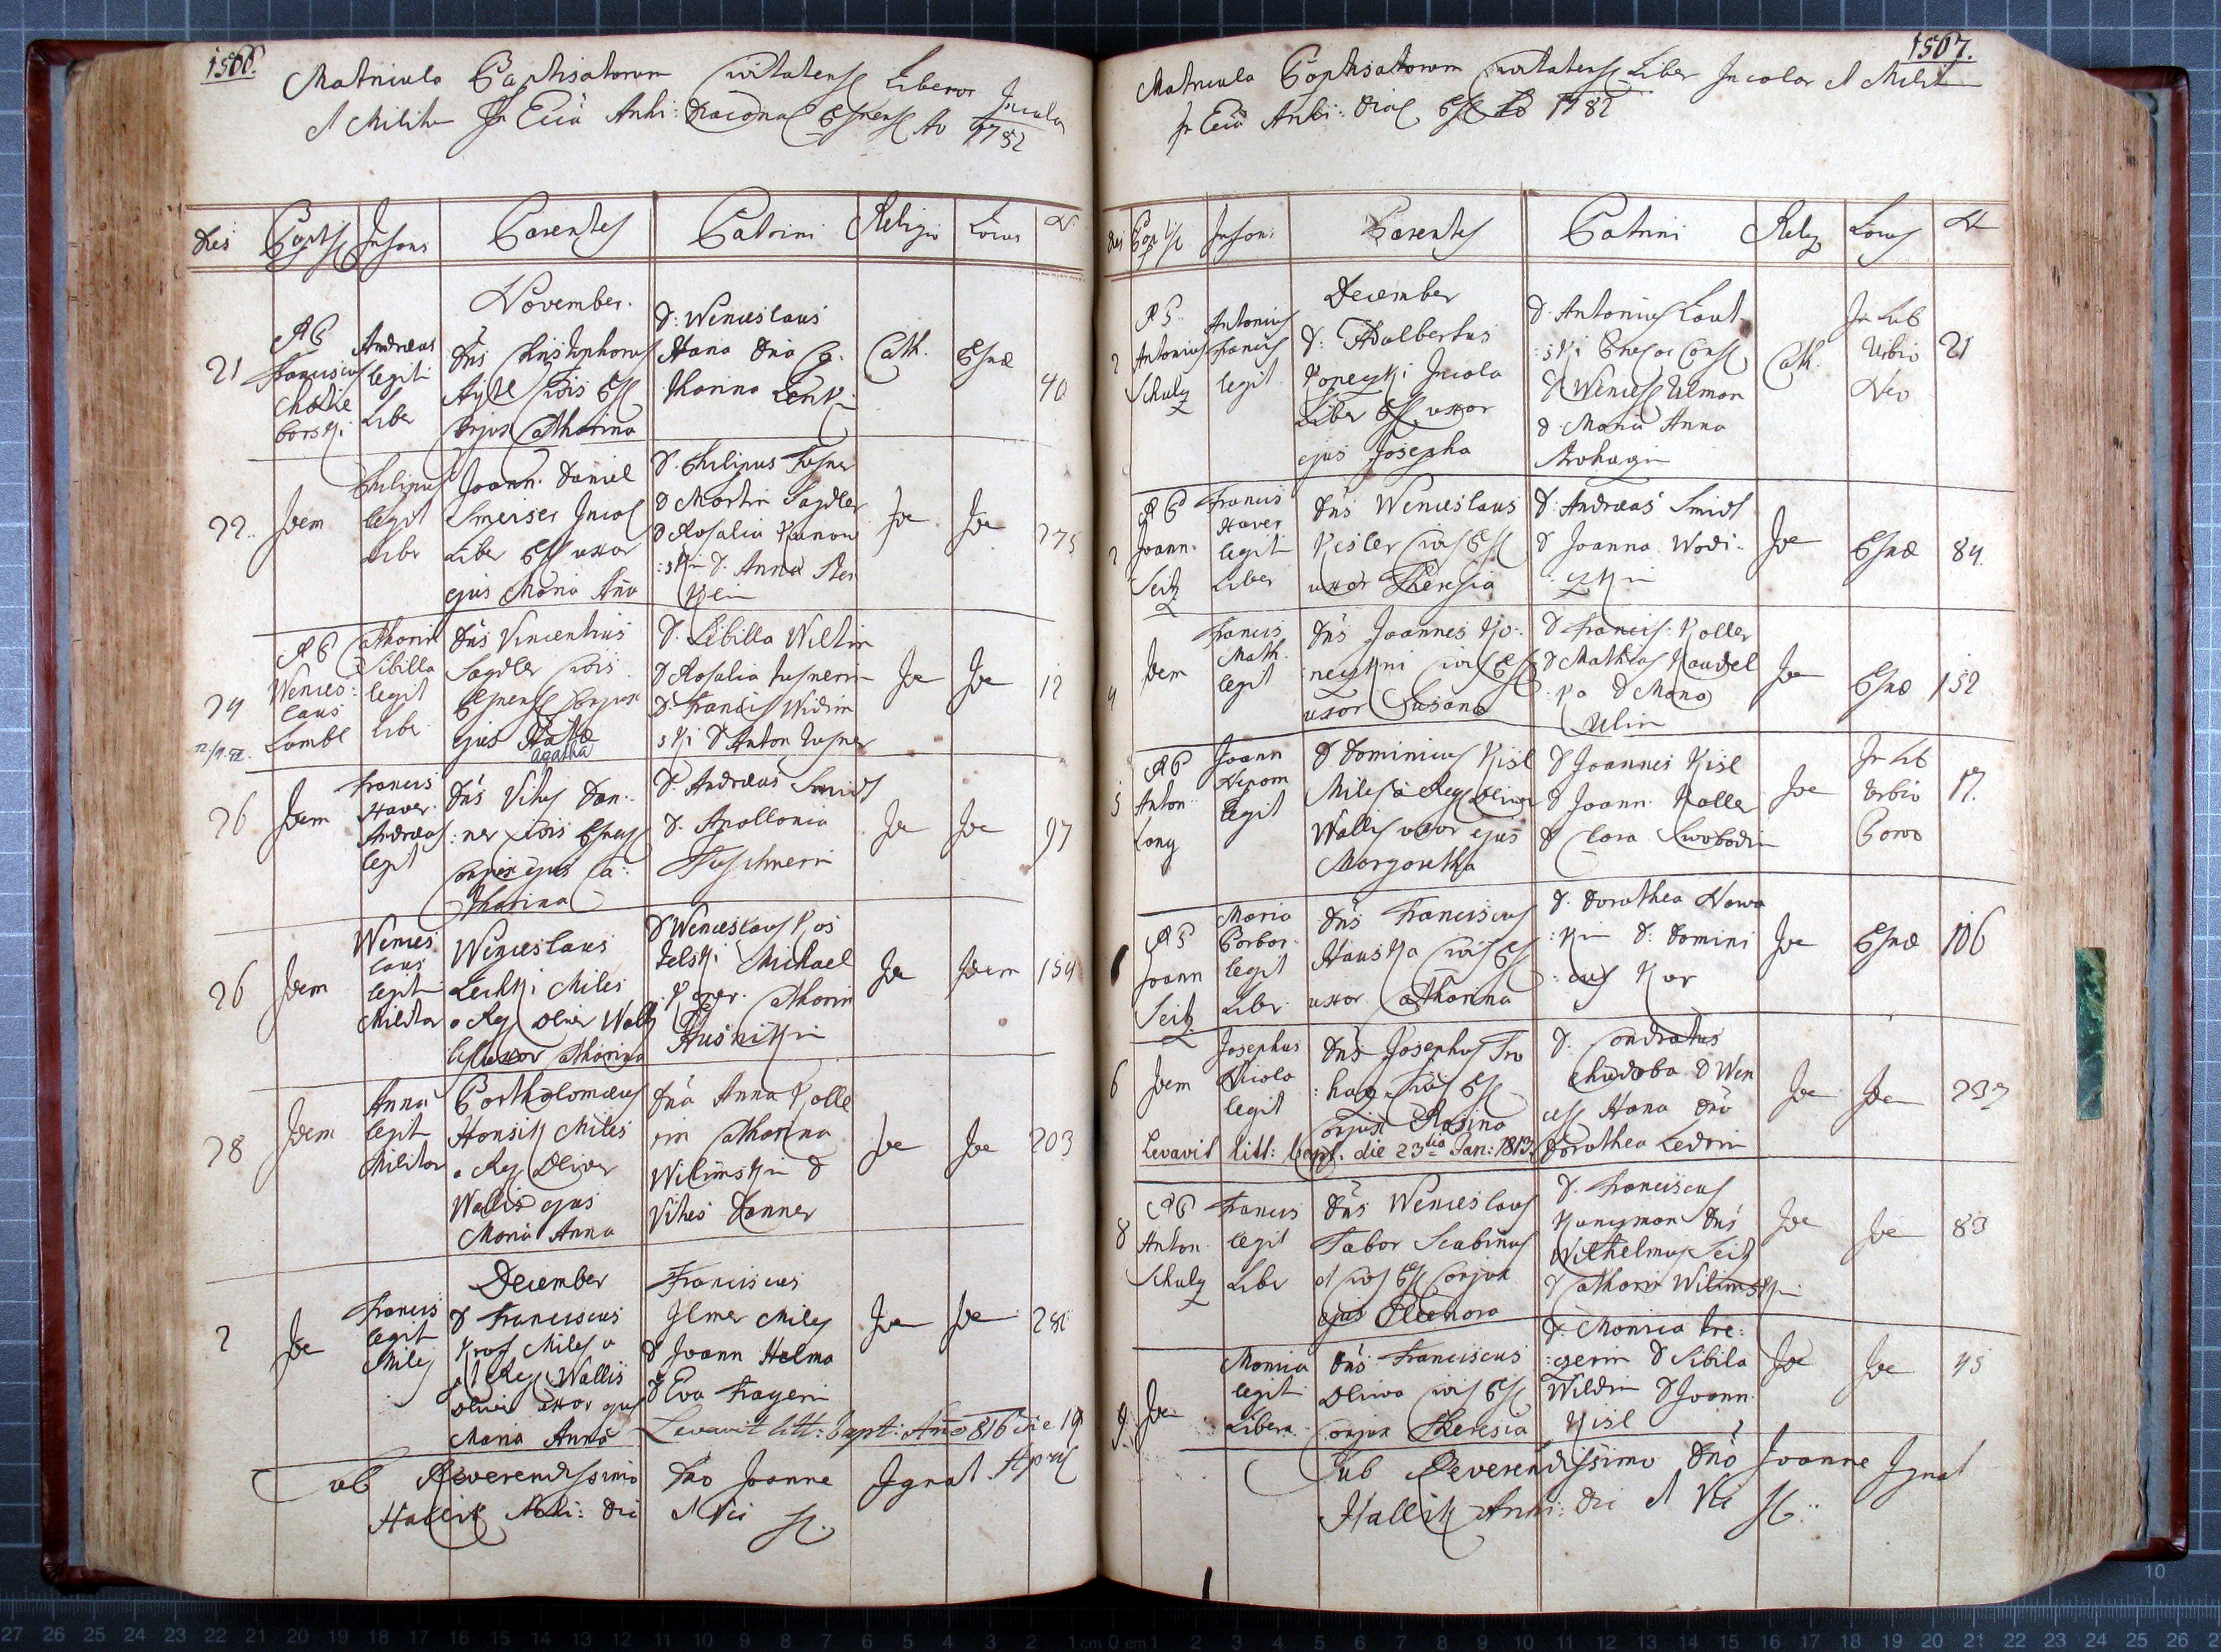 1506.
Matricula Baptisatorum Civitatense Liberor Incola
et Militum In Ecia Archi: Diacona Plsnens Ao 1782
Dies Baptis Infans Parentes Patrini Religio Locus N
November.
21
R P
Franciscus
Chotie
borski
Andreas
legit
Liber
Dns Christophorus
Civis Pls
Conjux Catharina
D: Wenceslaus
Hana Dna Ca
tharina
Cath.
Plsnæ
40
22.
Idem
Philipus
legit
Liber
Joann. Daniel
Smeiser Incol
Liber Pls uxor
ejus Maria Ana
D. Philipus Tusner
D Martin Sagdler
D Rosalia Kanow
:skin D. Anna
Ide
Ide
275
24
12/9.
R P
Wences:
laus
Lambl
Catharin
Sibilla
legit
Libe
Dns Vincentius
Sagdler Civis
Plsnens Conjux
ejus
agatha
D. Libilla Wildin
D Rosalia Tusnerin
D. Francis Widim
ski D Anton Tusner
Ide
Ide
12
26
Idem
Francis
Xaver.
Andreas
legit
Dns Vitus Dan:
:ner Civis Plsnens
Conjux ejus Ca:
tharina
D. Andreas Smid
D. Apollonia
Tuschnerin
Ide
Ide
97
26
Idem
Wences
laus
legit
Militar
Wenceslaus
Lechki Miles
a Reg Olivier Wallis
uxor Catharina
D Wenceslaus Kos
telski Michael
Catharin
Ide
Idem
154
28
Idem
Anna
legit
Militar
Bartholomæus
Honsik Miles
a Reg Oliver
Wallis ejus
Maria Anna
Dna Anna Kolle
rin Catharina
Wilimskin D
Vitus Danner
Ide
Ide
203
December
2
Ide
Francis
legit
Miles
D Franciscus
Kraus Miles a
Reg Wallis
Olivier uxor ejus
Maria Anna
Franciscus
Ilmer Miles
D Joann Helma
D Eva Trayerin
Levavit litt: bapt: Año 816 die 19
April
Ide
Ide
281
Sub Reverendissimo Dno Joanne Ignat
Hallik Archi: Dia et Vic
1507.
Matricula Baptisatorum Civitatense Liber Incolar et Militum
In Ecia Archi: Diac Pls Ao 1782
Dies Baptis Infans Parentes Patrini Relig Locus N
December
2
R P.
Antonius
Schulz
Antonius
Francis
legit.
D: Adalbertus
Koneczki Incola
Liber Pls uxor
ejus Josepha
D. Antonius Laut
:ski
D Wences Ulman
D. Maria Anna
Cath.
In Sub
Urbio
Neo
21
2
R P
Joann.
Seitz
Francis
Xaver
legit
Liber
Dns Wenceslaus
Kesler Civis Pls
uxor Theresia
D: Andreas Smidt
D Joanna Wodi:
:czkin
Ide
Plsnæ
84.
4
Idem
Francis
Math.
legit
Dns Joannes Ko:
neczkni Civis Pls
uxor Susana
D Francis. Koller
D Mathias Kaudel
:ka D Mana
Ulin
Ide
Plsnæ
152
5
R P
Anton.
Lang
Joann
Nepom
legit
D Dominicus Kisl
Miles a Reg Olivier
Wallis uxor ejus
Margaretha
D Joannes Kisl
D Joann. Koller
D Clara Swobodin
Ide
In Sub
Urbio
17.
R P
Joann
Seitz
Maria
Barbar.
legit
Liber
Dns Franciscus
Hauska Civis Pls
uxor Catharina
D. Dorothea Nowa
:kin D: Domini
:cus Kar
Ide
Plsnæ
106
6
Idem
Josephus
Nicola
legit
Dns Josephus Tro
:hager Civis Pls
Conjux Rosina
D: Condratus
Chudoba D Wen
ces Hana Dna
Dorothea Ledrin
Levavit litt: bapt. die 23tia Jan: 1813
Ide
Ide
237
8
R P
Anton
Schulz
Francis
legit
Liber
Dns Wenceslaus
Tabor Scabinus
et Civis Pls Conjux
ejus Eleonora
D. Franciscus
Kunzman Dns
Wilhelmus Seitz
D Catharin Wilimskin
Ide
Ide
83
9.
Ide
Monica
legit
Libera
Dns Franciscus
Oliwa Civis Pls
Conjux Theresia
D. Monica Tre:
:gerin D Sibila
Wildin D Joann.
Kisl
Ide
Ide
45
Sub Reverendissimo Dno Joanne Ignat
Hallik Archi: Dia et Vic